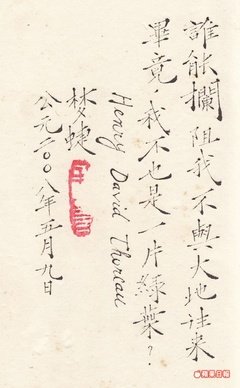 誰能攔阻我不與大地往來
畢竟，我不也是一片綠葉？
Henry David Thoreau
梦婕
公元二〇〇八年五月九日
蘋果日報